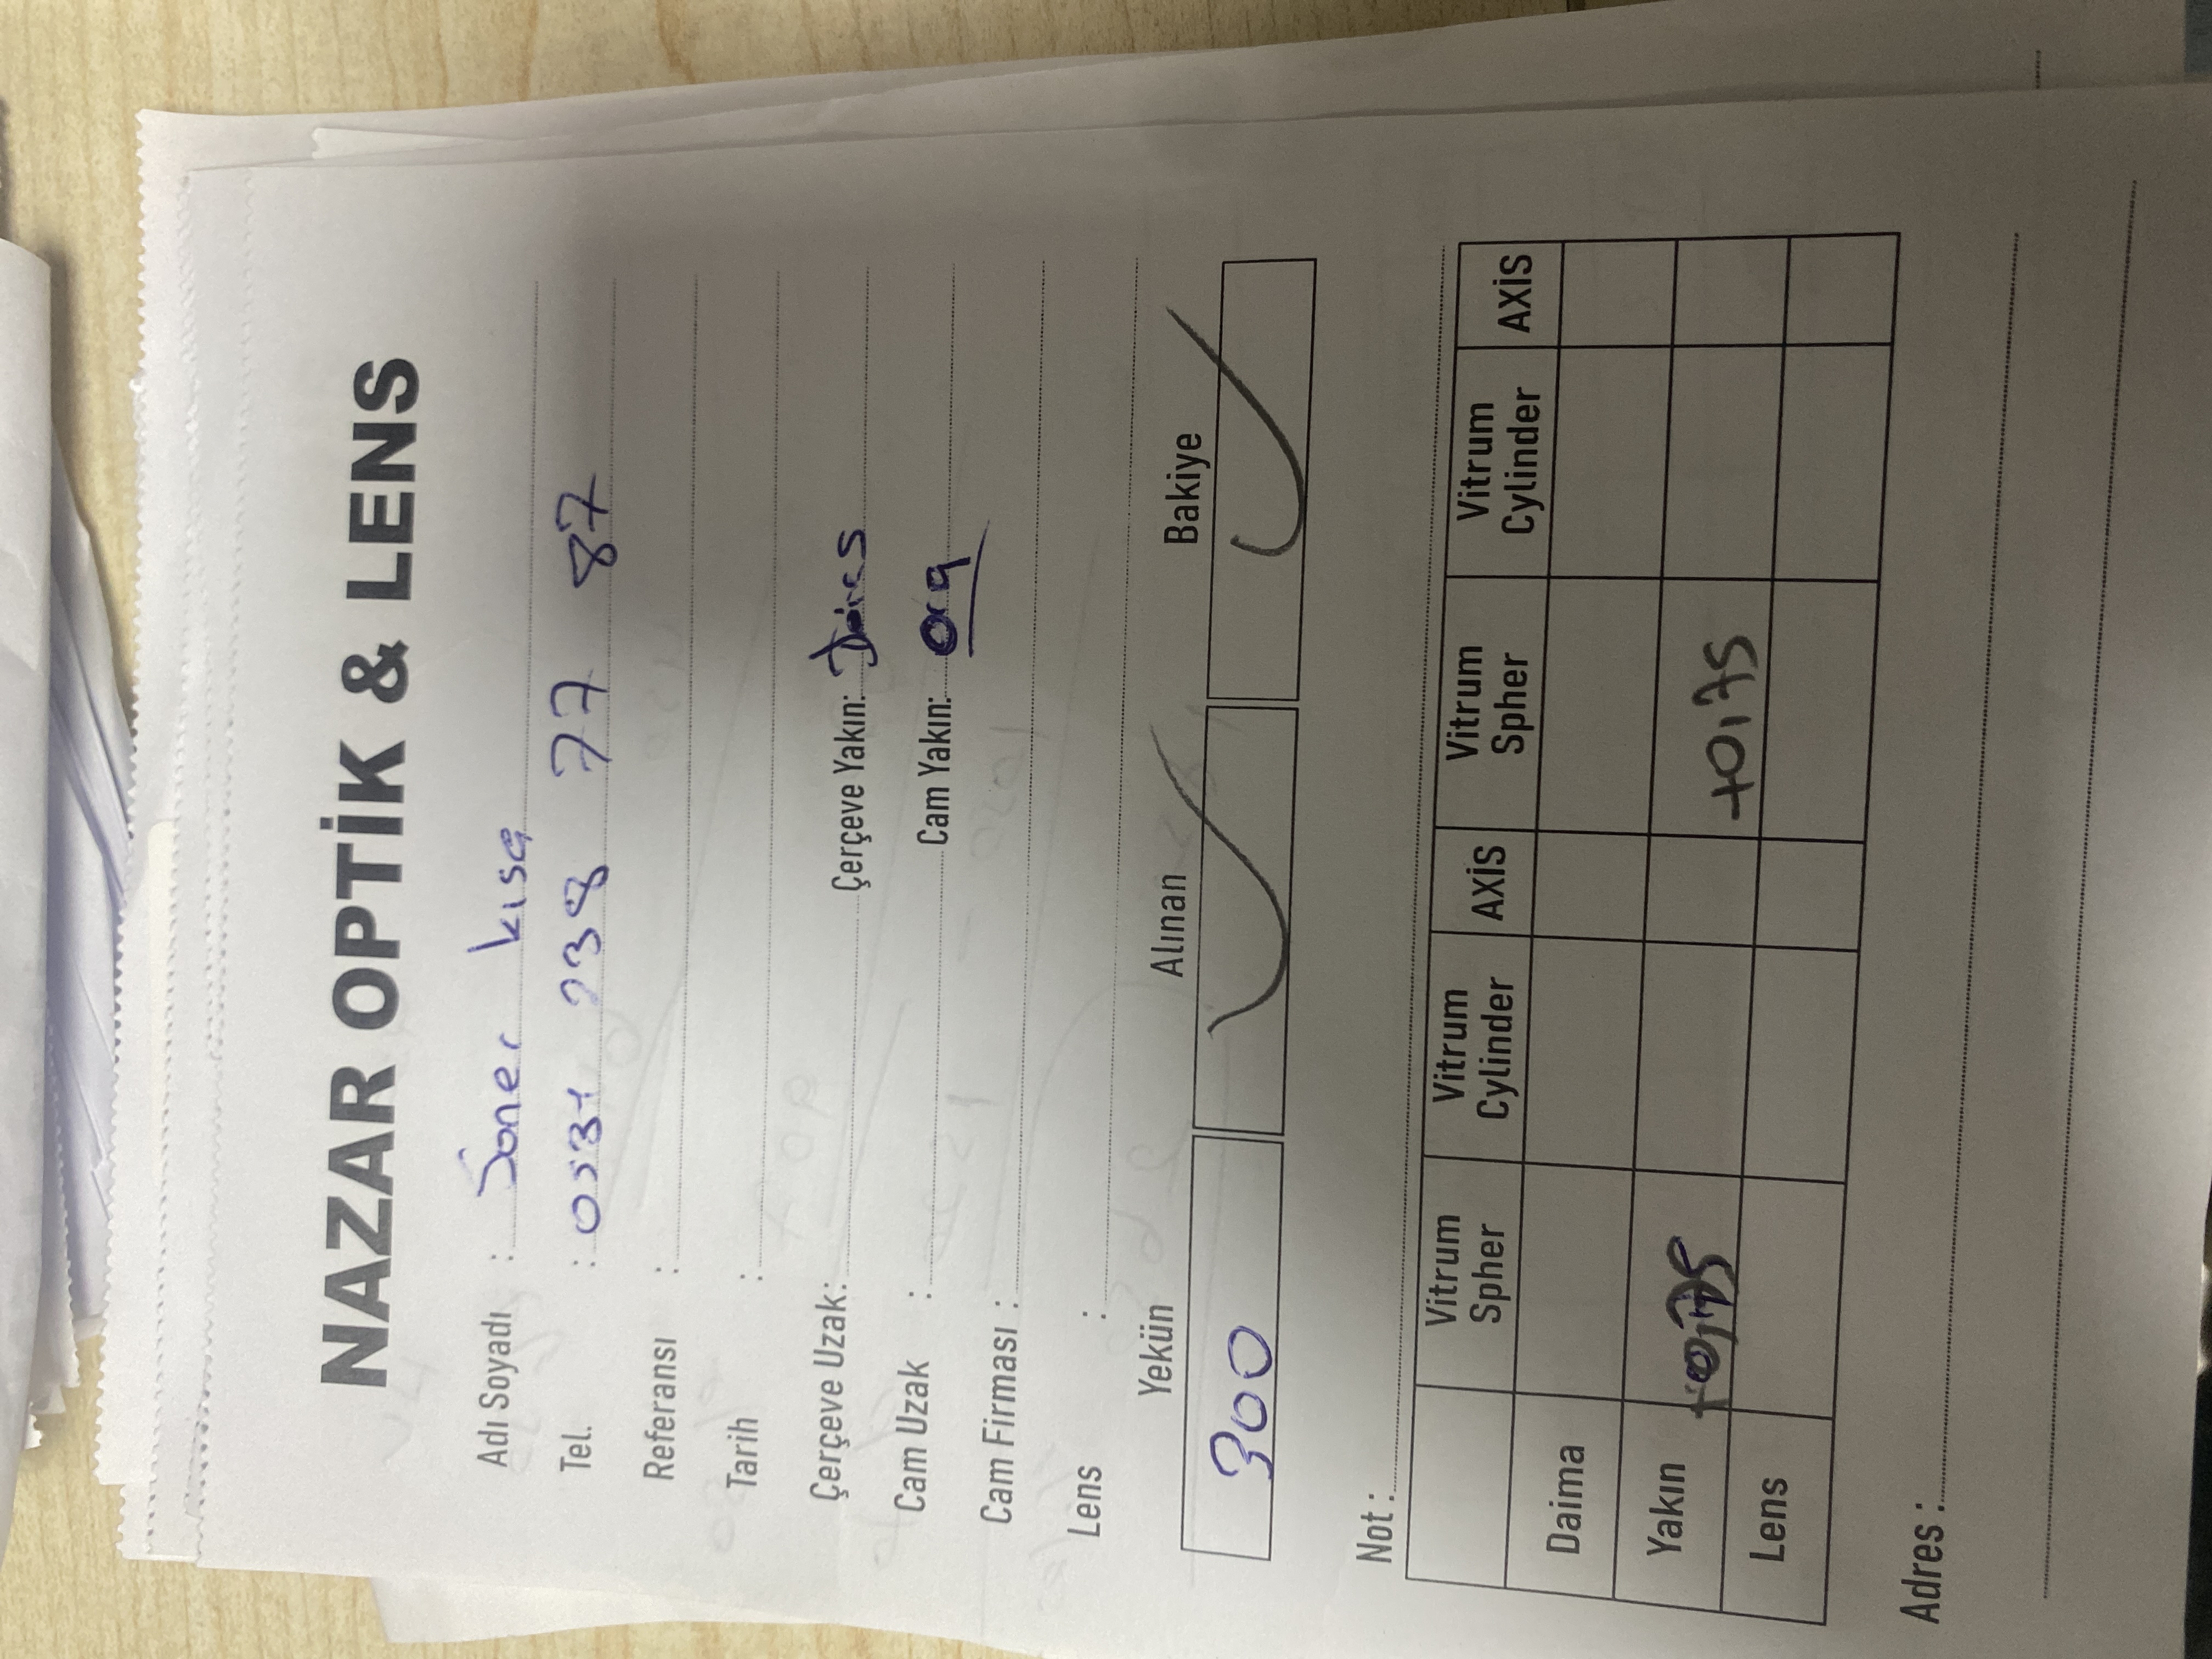 NAZAR OPTİK & LENS
Adı Soyadı : Soner kısa
Tel. : 0531 238 77 87
Referansı :
Tarih :
Çerçeve Uzak: Çerçeve Yakın:
Cam Uzak : Cam Yakın: org
Cam Firması :
Lens :
Yekün Alınan Bakiye
300
Not :
Vitrum Spher Vitrum Cylinder AXİS Vitrum Spher Vitrum Cylinder AXİS
Daima
Yakın +0,75 +0,75
Lens
Adres :